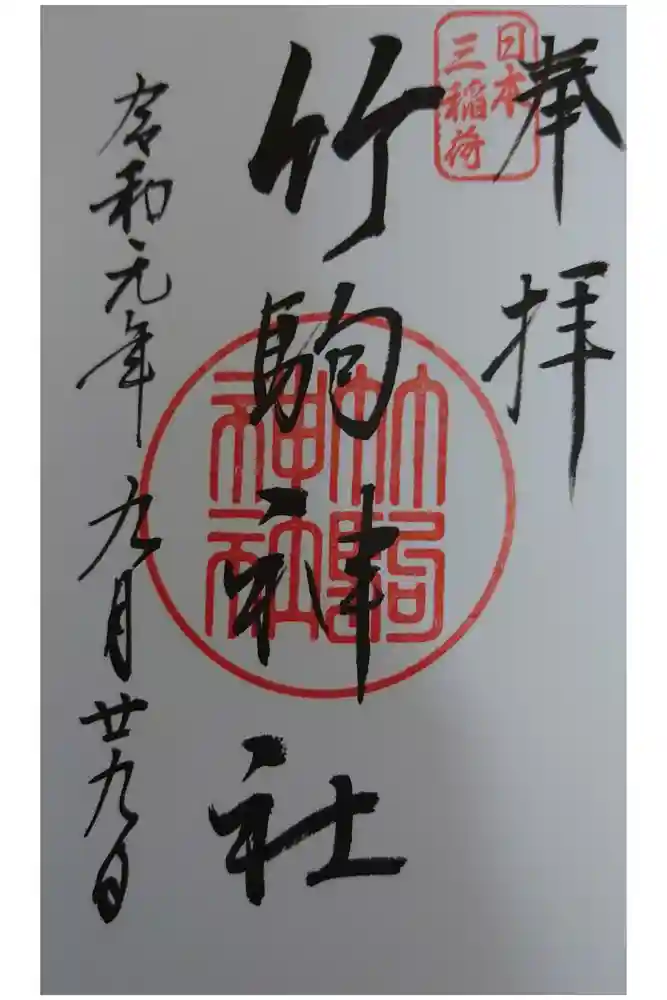 奉拝
日本
三稲荷
竹駒神社
竹駒
神社
令和元年九月廿九日